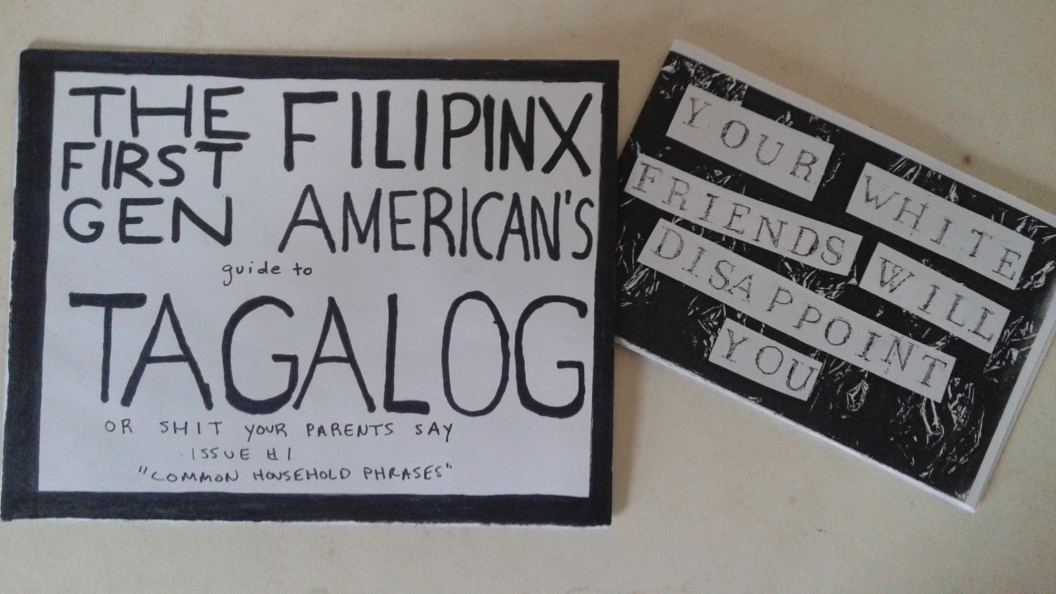 THE FILIPINX
FIRST
GEN AMERICAN'S
guide to
TAGALOG
OR SHIT YOUR PARENTS SAY
ISSUE #1
"COMMON HOUSEHOLD PHRASES"
YOUR WHITE
FRIENDS WILL
DISAPPOINT
YOU